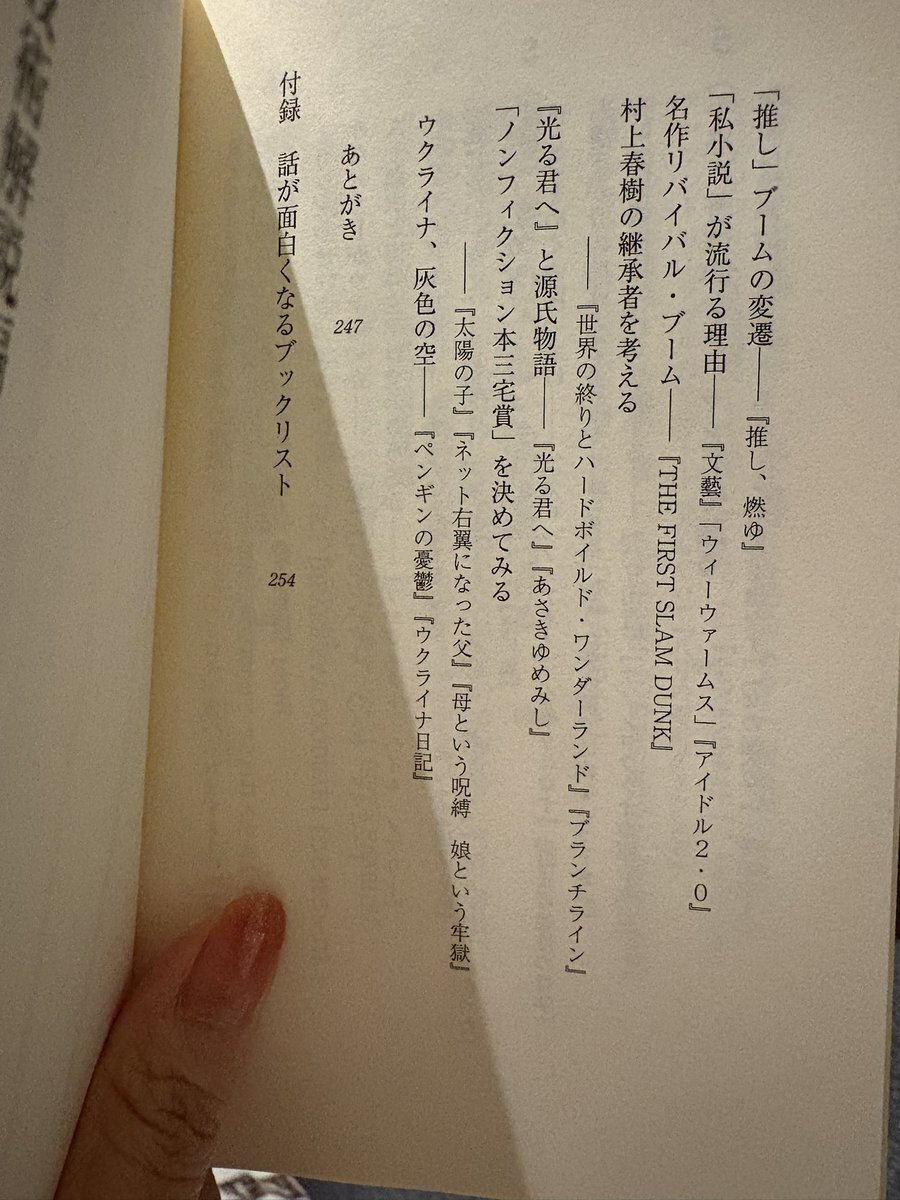 「推し」ブームの変遷――『推し、燃ゆ』
「私小説」が流行る理由――『文藝』「ウィーウァームス」『アイドル2.0』
名作リバイバル・ブーム――『THE FIRST SLAM DUNK』
村上春樹の継承者を考える
――『世界の終りとハードボイルド・ワンダーランド』『ブランチライン』
『光る君へ』と源氏物語――『光る君へ』『あさきゆめみし』
「ノンフィクション本三宅賞」を決めてみる
――『太陽の子』『ネット右翼になった父』『母という呪縛 娘という牢獄』
ウクライナ、灰色の空――『ペンギンの憂鬱』『ウクライナ日記』
あとがき 247
付録 話が面白くなるブックリスト 254